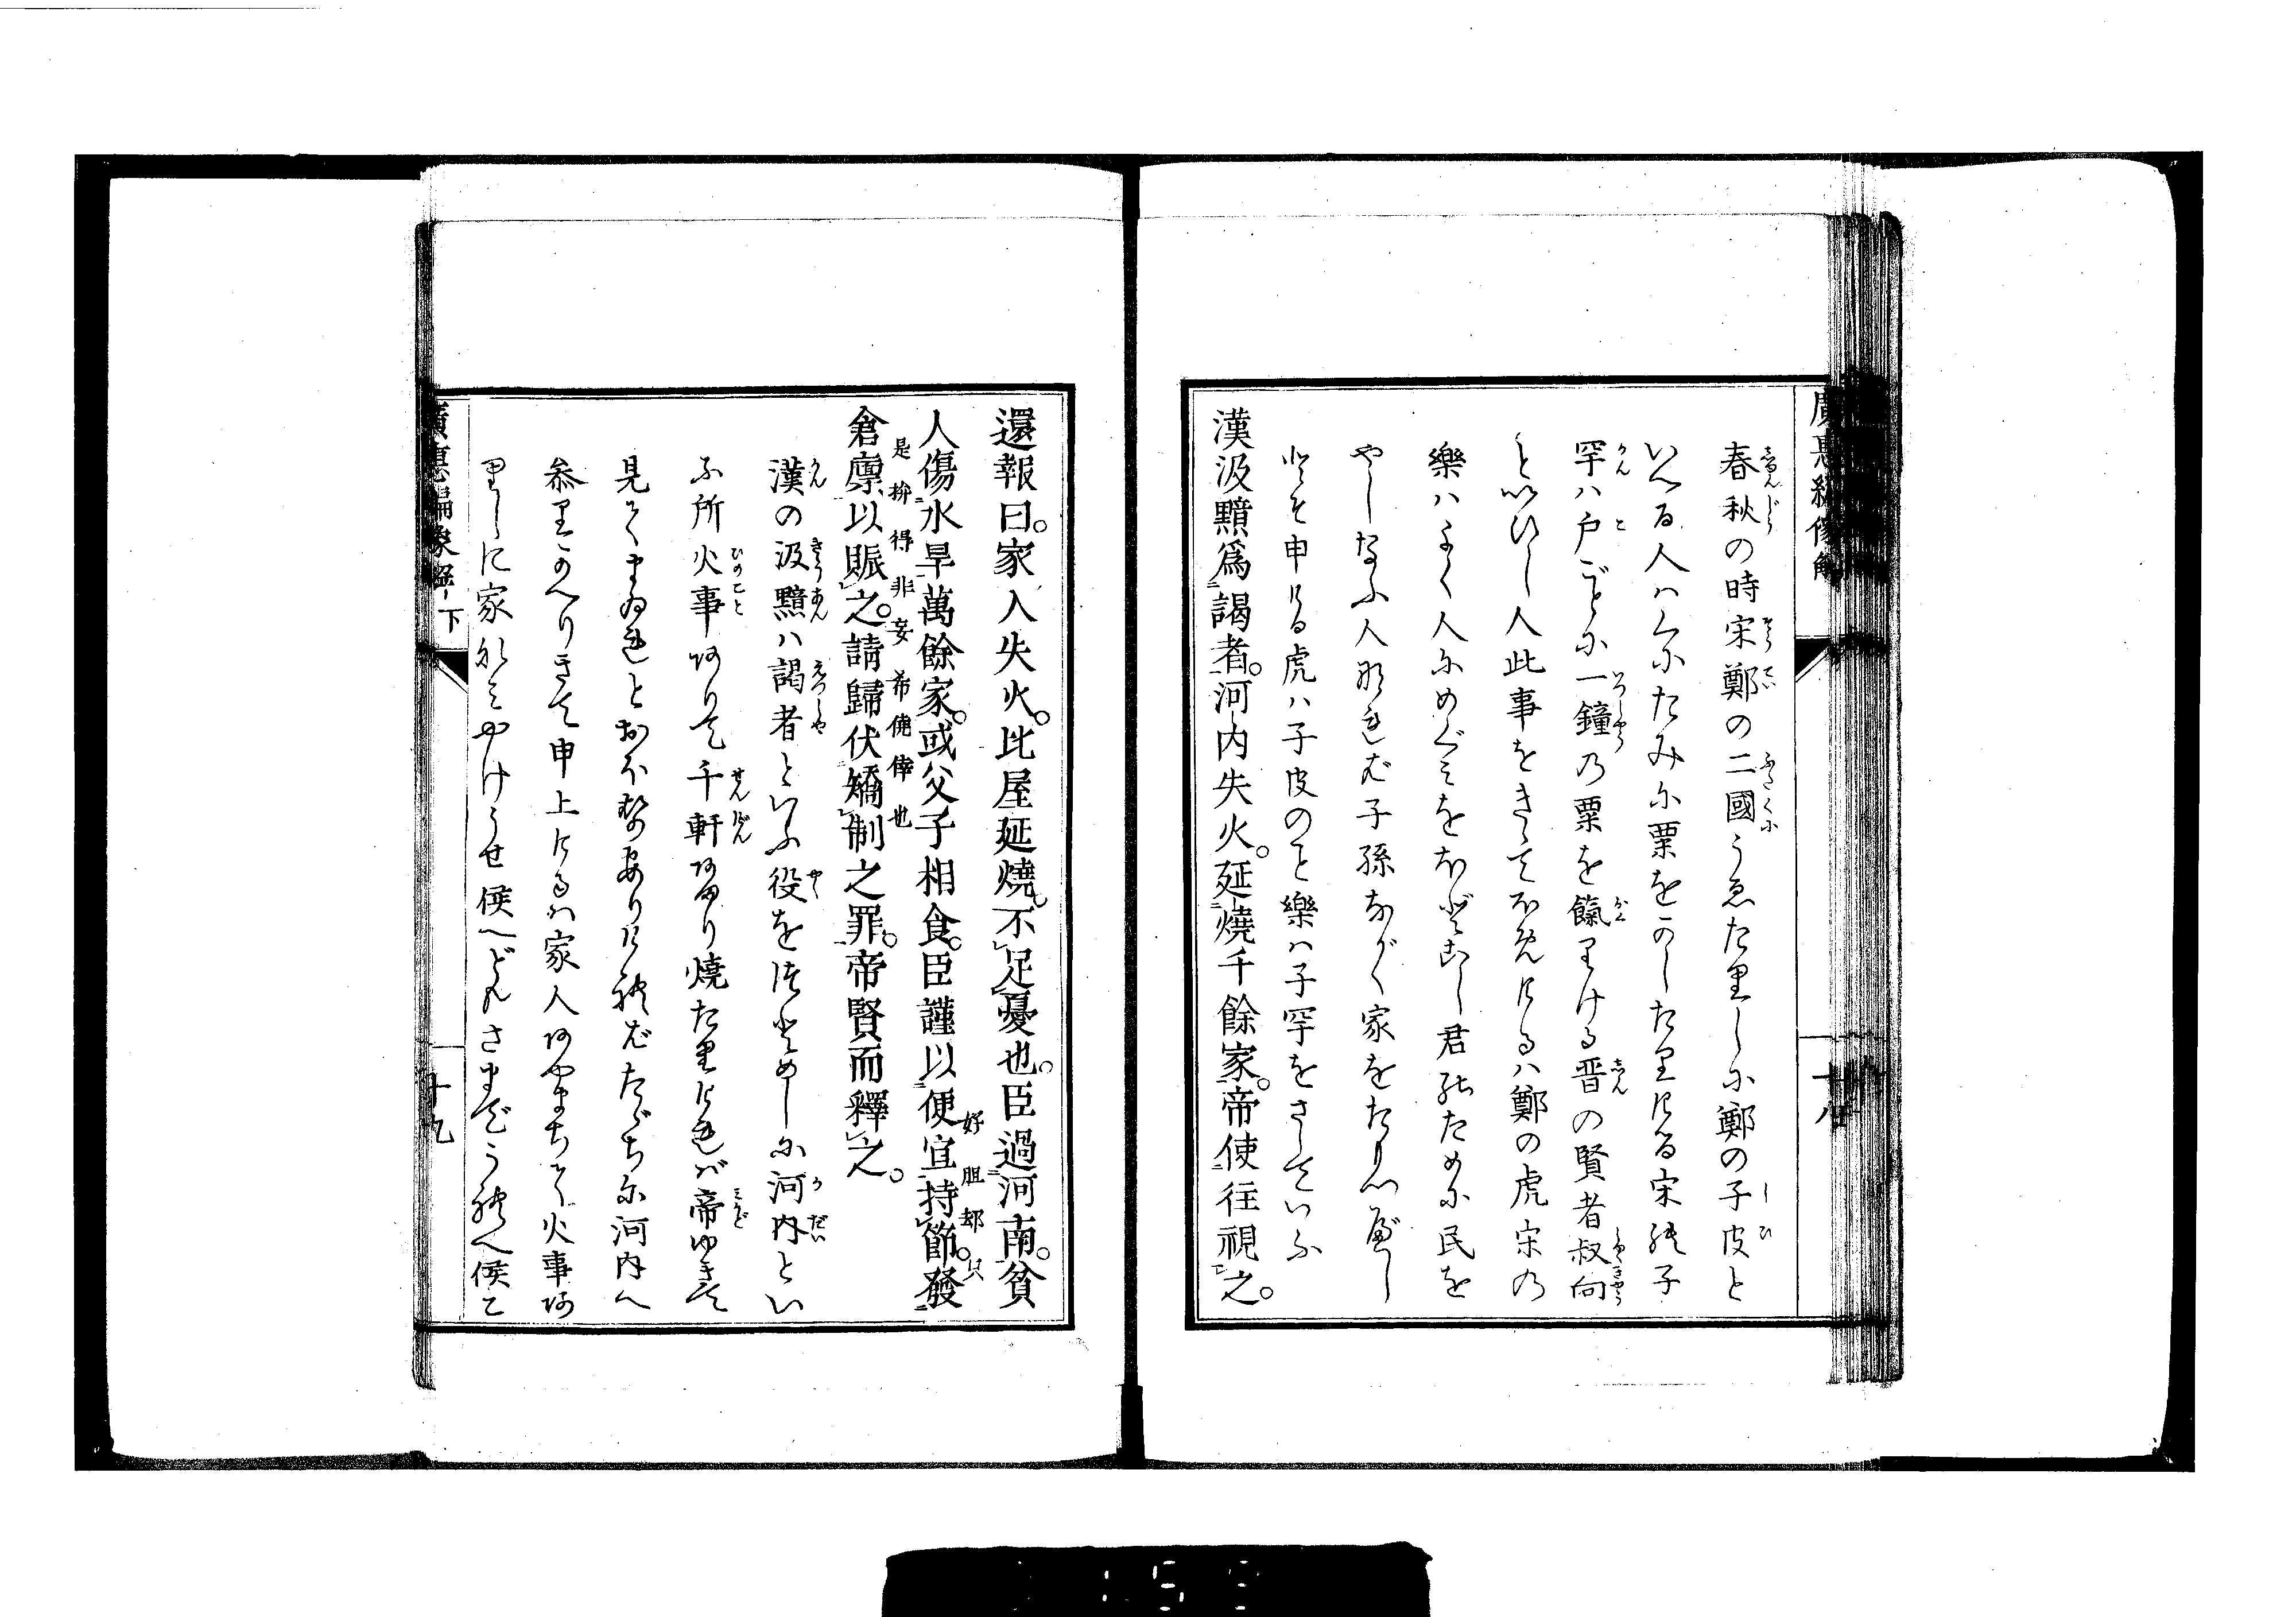 春秋の時宋鄭の二國うゑた里しに鄭の子皮と
いへる人ハくにたみに粟をかしたりける宋の子
罕ハ戸ごとに一鐘の粟を餼りける晋の賢者叔向
といひし人此事をきゝてほめけるハ鄭の虎宋の
樂ハよく人にめぐみをほどこし君のために民を
やしなふ人なれば子孫ながく家をたもつべし
とそ申ける虎ハ子皮のこと樂ハ子罕をさしていふ
漢汲黯爲謁者。河内失火。延燒千餘家。帝使往視之。
還報曰。家人失火。比屋延燒。不足憂也。臣過河南。貧
人傷水旱萬餘家。或父子相食。臣謹以便宜持節。發
好胆却只
倉廪以賑之。請歸伏矯制之罪。帝賢而釋之。
是拚得非妄希僥倖也
漢の汲黯ハ謁者といふ役をつとめしに河内とい
ふ所火事ありて千軒あまり燒た里ければ帝ゆきて
見てまゐれとおほせありければたゞちに河内へ
参里かへりきて申上けるハ家人あやまちて火事あ
里しに家なみやけうせ候へどもさまでうれへ候こ
廣惠編像解
十八
廣惠編像解 下
十九